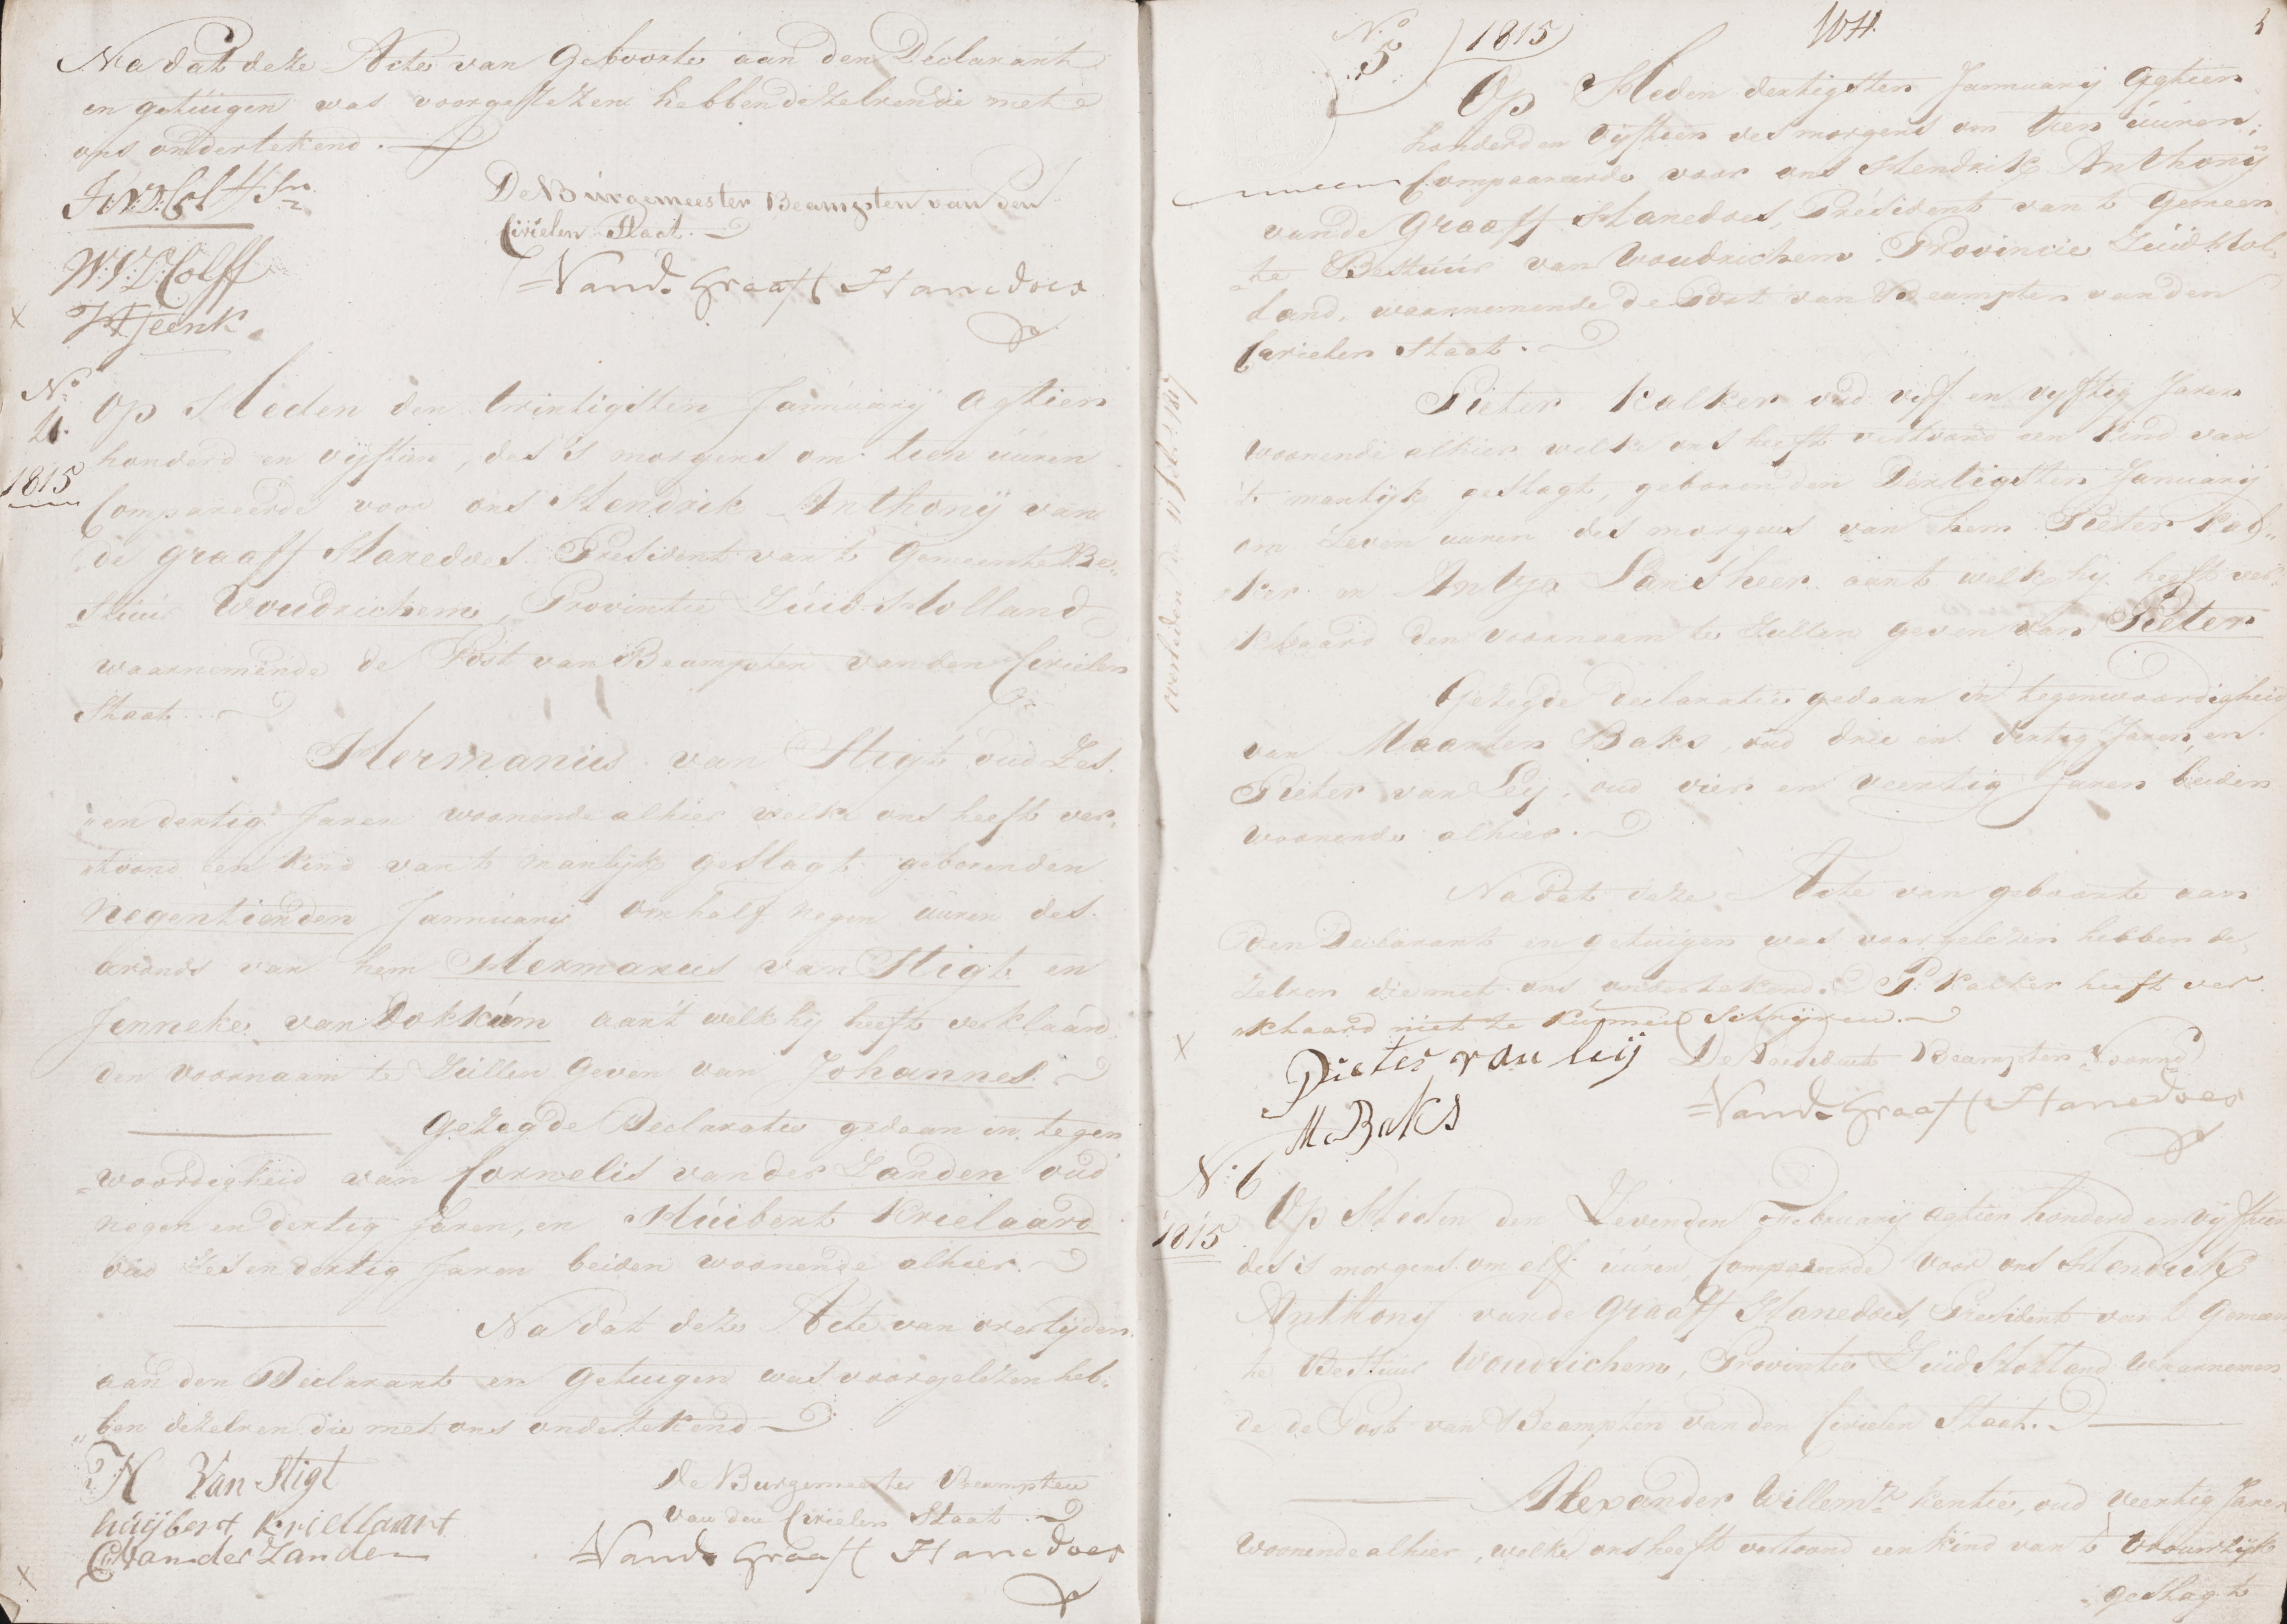 Na dat deze Acte van Geboorte aan den Declarant
en getuigen was voorgelezen hebben dezelven die met
ons ondertekend.
W.J.L. Colff
De Burgemeester Beampten van den
Civielen Staat.
VandeGraaff Hanedoes
No
4.
1815
Op Heden den twintigsten Januarij Agtien
honderd en vijftien, des 's morgens om tien uuren
Compareerde voor ons Hendrik Anthonij van
de Graaff Hanedoes President van t Gemeente Be„
„stuur Woudrichem, Provintie Zuid Holland
waarnemende de Post van Beampten van den Civielen
Staat.
Hermanus van Stigt oud Zes
„en dertig Jaren woonende alhier welke ons heeft ver„
„toond een Kind van t manlijk geslagt geboren den
Negentienden Januarij om half negen uuren des
avonds van hem Hermanus van Stigt en
Jenneke van Dokkum aan't welk hij heeft verklaard
den voornaam te Zullen Geven van Johannes.
Gezegde Declaratie gedaan in tegen
„woordigheid van Cornelis van der Zanden oud
negen en dertig Jaren, en Huibert Krielaard
oud Zes en dertig Jaren beiden woonende alhier.
Na dat deze Acte van overlijden
aan den Declarant en Getuigen was voorgelezen heb„
„ben dezelven die met ons ondertekend
H Van Stigt
huijbert kriellaart
C van der Zanden
De Burgemeester Beampten
van den Civielen Staat.
VandeGraaff Hanedoes
No
5
1815
Op Heden dertigsten Januarij Agtien
honderd en Vijftien des morgens om tien uuren,
Compareerde voor ons Hendrik Anthonij
van de Graaff Hanedoes, President van t Gemeen
„te Bestuur van Woudrichem Provincie Zuid Hol„
land, waarnemende de Post van Beampten van den
Civielen Staat.
Pieter Kalker oud vijf en vijftig Jaren
woonende alhier welke ons heeft vertoond een Kind van
't manlijk geslagt, geboren den Dertigsten Januarij
om Zeven uuren des morgens van hem Pieter Kal„
„ker en Antje Lansheer aan t welk hij heeft ver„
„klaard den voornaam te Zullen geven van Pieter
Gezegde declaratie gedaan in tegenwoordigheid
van Maarten Baks, oud drie en dertig Jaren, en
Pieter van Leij, oud vier en veertig Jaren beiden
woonende alhier.
Na dat deze Acte van geboorte aan
den Declarant en getuigen was voorgelezen hebben de„
zelven die met ons ondertekend. P. Kalker heeft ver
„klaard niet te kunnen Schrijven.
Pieter van leij
M. Baks
De President Beampten Voornd
VandeGraaff Hanedoes
No 6
1815
Op Heden den Zevenden Februarij agtien honderd en vijftien
des 's morgens om elf uuren, Compareerde voor ons Hendrik
Anthonij van de Graaff Hanedoes, President van t Gemeen
te Bestuur Woudrichem, Provintie Zuid Holland waarnemen
de de Post van Beampten van den Civielen Staat.
Alexander Willemsz Kentie, oud veertig Jaren
Woonende alhier, welke ons heeft vertoond een kind van t vrouwlijk
„geslagt